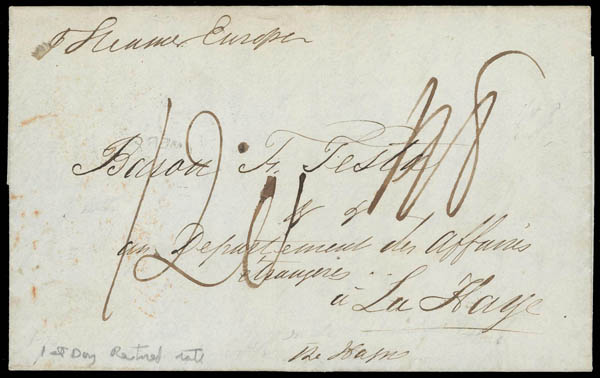 p Steamer Europa
Baron F. Testa
& &
au Departement des affaires
étrangeres
à La Haye.
The Hague
1st Day Restored rate